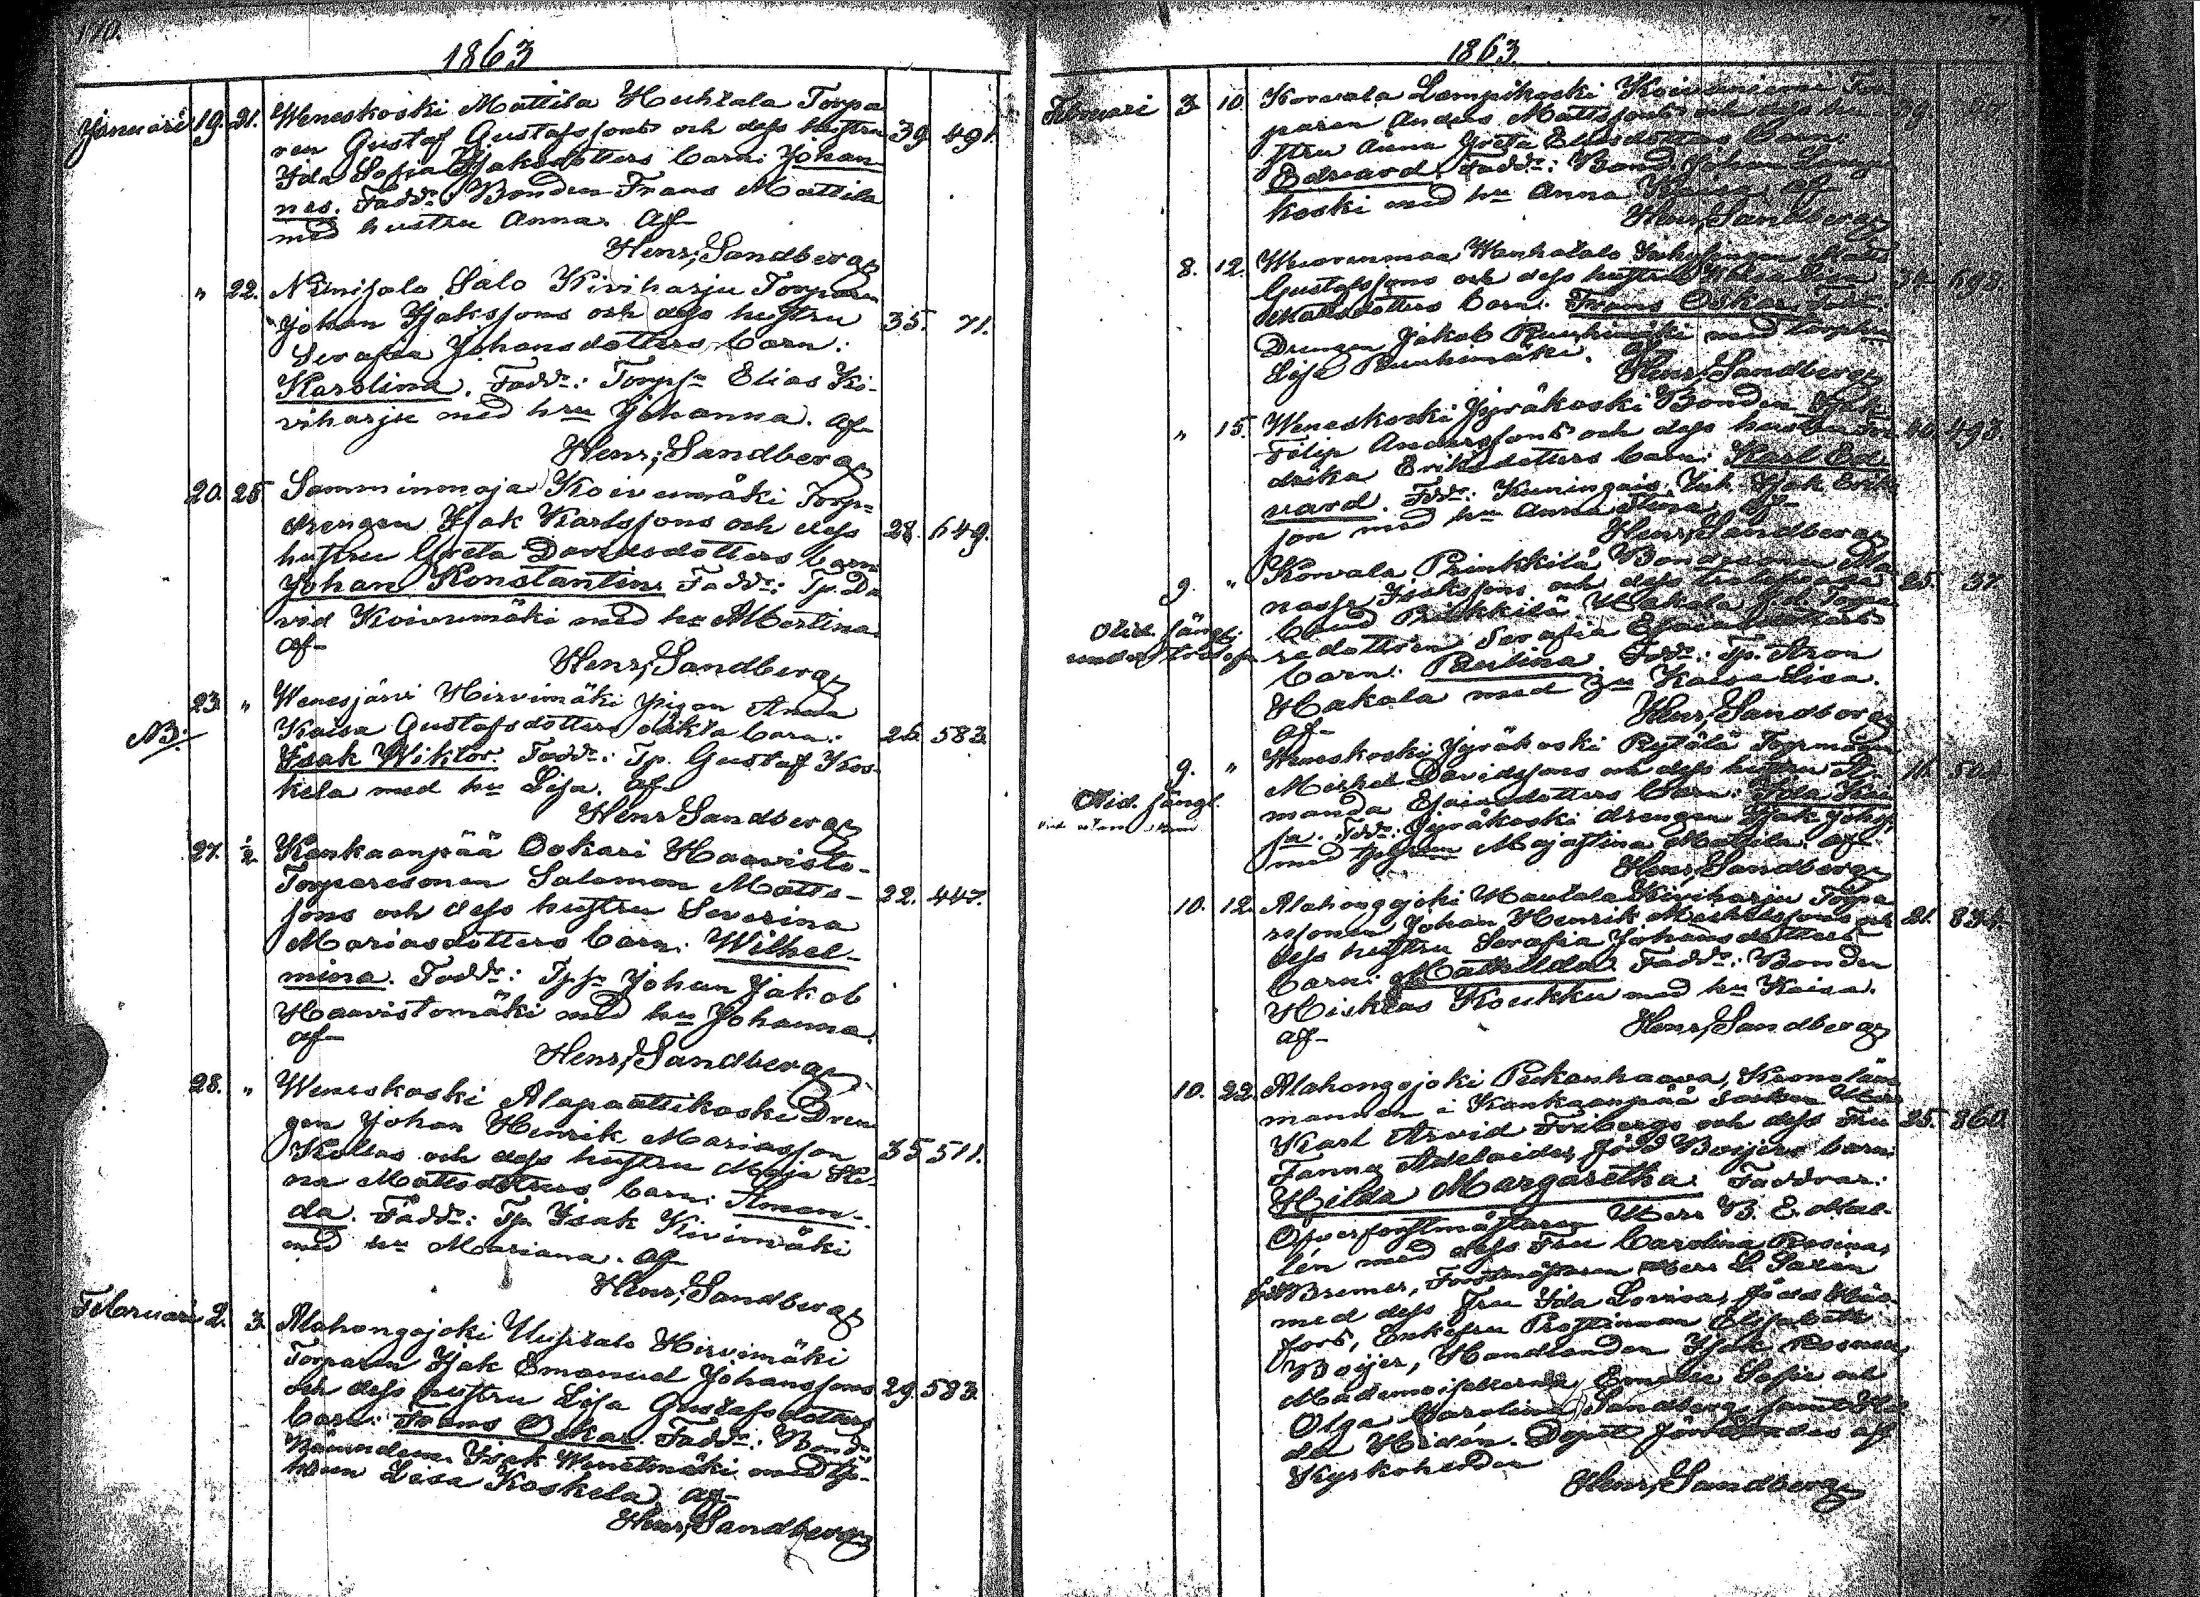 170.
1863
Januari 19. 21. Weneskoski Mattila Huhtala Torpa
ren Gustaf Gustafssons och dess hustru 39. 491.
Ida Sofia Isaksdotters barn: Johan
nes. Fadd:r Bonden Frans Mattila
med hustru Anna. Af
Henr. Sandberg
" 22. Niinisalo Salo Kiviharju Torparen
Johan Isakssons och dess hustru 35. 71.
Serafia Johansdotters barn:
Karolina. Fadd:r: Torps:n Elias Ki-
viharju med hru Johanna. Af
Henr. Sandberg
20. 25 Samminmaja Koivumäki Torp-
drengen Isak Karlssons och dess 28. 649.
hustru Greta Davidsdotters barn
Johan Konstantin. Fadd:r: Tp. Da
vid Koivumäki med hu Albertina
Af
Henr. Sandberg
23. " Wenesjärvi Hirvimäki pigan Anna
NB: Kaisa Gustafsdotters oäkta barn: 26. 583.
Isak Wiktor. Fadd:r: Tp. Gustaf Kos-
kela med hu Lisa. Af
Henr. Sandberg
27. 1/2 Kankaanpää Ookari Haavisto-
Torparesonen Salomon Matts- 22. 447.
sons och dess hustru Severina
Mariasdotters barn: Wilhel-
mina. Fadd:r: Tps:n Johan Jakob
Haavistomäki med hu Johanna.
Af
Henr. Sandberg
28. " Weneskoski Alapaattikoski Dren
gen Johan Henrik Mariasson
och dess hustru Maja Sti- 35 511.
na Mattsdotters barn: Aman-
da. Fadd:r: Tp. Isak Kivimäki
med hu Mariana. Af
Henr. Sandberg
Februari 2. 3. Alahongojoki Hirvimäki
Torparen Isak Emanuel Johanssons
och dess hustru Lisa Gustafsdotters 29. 583.
barn: Frans Oskar. Fadd:r: Bonde
Isak med tp-
hrun Lisa Koskela. Af
Henr. Sandberg
1863.
Februari 3. 10. Korvala Lampikoski Koivuniemi Tor
paren Anders Mattssons och dess hu 39.
stru Anna Greta Eliasdotters barn:
Edvard. Fadd:r: Bond. Johan Lampi
koski med hu Anna Af
Henr. Sandberg
8. 12. Mats
Gustafssons och dess hustru 34. 693.
Mattsdotters barn: Frans Oskar. Fadd:r:
Drengen Jakob Ruuhimäki med torphu
Lisa Ruuhimäki. Af
Henr. Sandberg
" 15. Weneskoski Jyräkoski Bonden Isak
Filip Anderssons och dess hustru Fre 40. 493.
drika Eriksdotters barn: Karl Ed-
vard. Fadd:r: Kuningais Inh. Isak Eriks
son med hu Anna Stina. Af
Henr. Sandberg
9. " Korvala Prinkkilä Bondesonen Ma
nasse Isakssons och dess trolofvade 25. 37.
Oläd. sängl. brud Prinkkilä Hakala f.d. Torpa
under trolofn. redottren Serafia Esaiasdotters
barn: Paulina. Fadd:r: Tp. Aron
Hakala med hu Kaisa Lisa.
Af
Henr. Sandberg
9. " Weneskoski Jyräkoski Rytölä Torpmågen
Mickel Davidssons och dess hustru A- 18. 504.
manda Esaiasdotters barn: Ida Kai
sa. Fadd:r: Jyräkoski drengen Isak Johs.
med tphrun Majastina Mattila. Af
Henr. Sandberg
10. 12. Alahongojoki Hautala Kiviharju Torpa
resonen Johan Henrik Mickelssons och 21. 834.
dess hustru Serafia Johansdotters
barn: Mathilda. Fadd:r: Bonden
Hiskias Koukku med hu Kaisa.
Af
Henr. Sandberg
10. 22. Alahongojoki Peskanhaara, Kronolän
mannen i Kankaanpää socken Herr
Karl Arvid Fribergs och dess Fru 25. 860.
Fanny Adelaides född Boijers barn:
Hilda Margaretha. Faddrar:
Öfverforstmästaren Herr B. E.
lén med dess Fru Carolina Rosina,
född Bremer, Forstmästaren Herr L. Saxén
med dess Fru Ida Lovisa, född
fors, Enkefru Prostinnan Elisabeth
Boijer, Handlanden Isak Rosnell,
Mademoisellerna Emelie Sofie och
Olga Carolina Sandberg samt Hil
da Hidén. Dopet förrättades af
Kyrkoherden
Henr. Sandberg